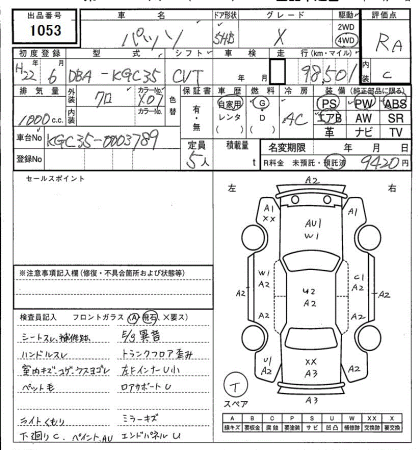 出品番号 車名 ドア形状 グレード 駆動 評価点
1053 パッソ 5HB X 2WD 4WD RA
初度登録 型式 シフト 車検 走行(km・マイル) 内装
H22年 6月 DBA-KGC35 CVT 年 月 98,501 C
排気量 外装 カラーNo. 色替 保証書 車歴 燃料 冷房 装備(純正部品に限る)
1000c.c. クロ X07 有・無 自家用 レンタ G D AC PS PW ABS
内装 カラーNo. エアB AW SR
革 ナビ TV
車台No. KGC35-0003789 定員 積載量 名変期限 年 月 日
登録No. 5人 t R料金 未預託・預託済 9420円
セールスポイント
左 右
A2
A1 XX A1
AU1 W1
A2 A2
W1 A2 C1 A2
A2 U2 A2 A2
U1 A2 XX A3 A2
A3
スペア
※注意事項記入欄(修復・不具合箇所および状態等)
検査員記入 フロントガラス(A・飛石・X要ス)
シートスレ、補修跡、 E/g異音
ハンドルスレ トランクフロア歪み
室内キズ・コゲ・ウスヨゴレ 左右インナーU小
ペット毛 ロアサポートU
ライトくもり ミラーキズ
下廻りC、ペイント、AU エンドパネルU
A B C P S U W X XX X
線キズ 要板金 腐蝕 要塗装 サビ 凹凸 補修跡 交換跡 要交換